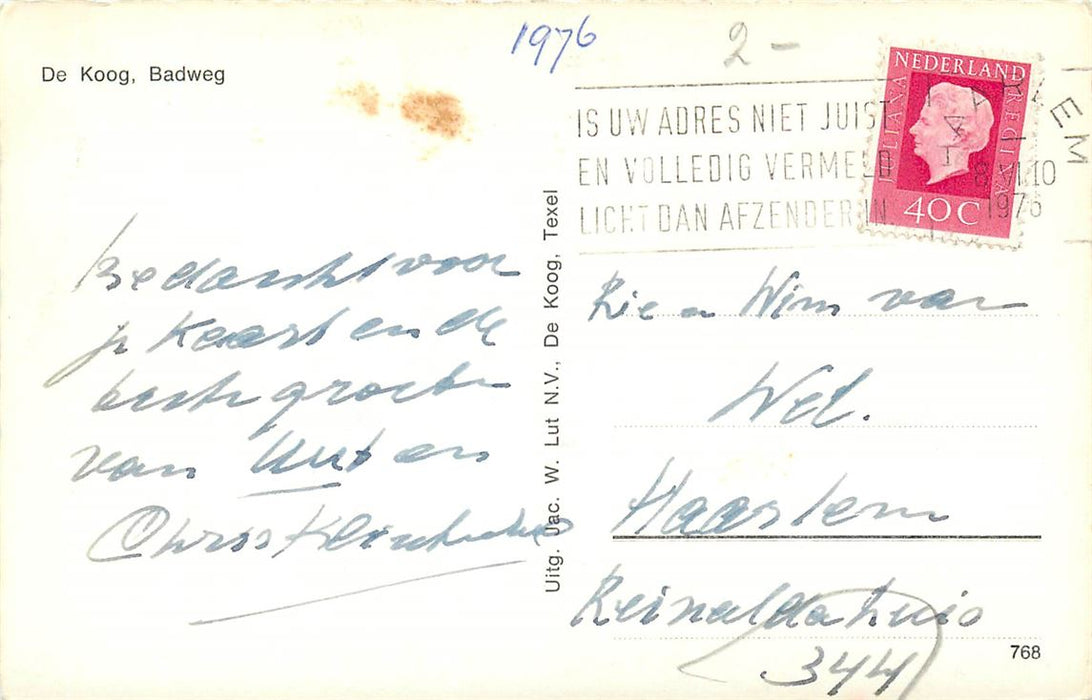 1976
2-
De Koog, Badweg
NEDERLAND
JULIANA
REGINA
40C
IS UW ADRES NIET JUIST
EN VOLLEDIG VERMELD
LICHT DAN AFZENDER IN
8.VI.10
1976
Bedankt voor
je kaart en de
beste groeten
van en
Chris
Uitg. Jac. W. Lut N.V., De Koog, Texel
Rie en Wim van
Wel.
Haarlem
Reinaldahuis
344
768